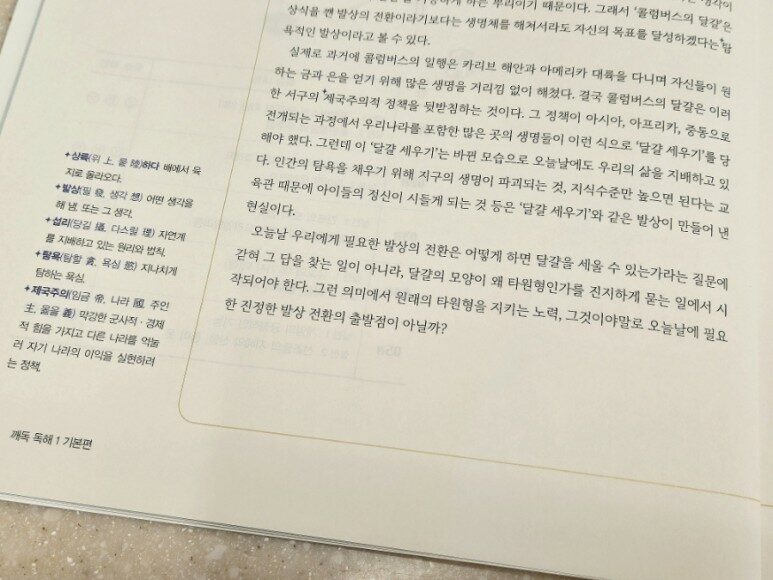 하게 하는 뿌리이기 때문이다. 그래서 ‘콜럼버스의 달걀’은
상식을 깬 발상의 전환이라기보다는 생명체를 해쳐서라도 자신의 목표를 달성하겠다는 탐
욕적인 발상이라고 볼 수 있다.
실제로 과거에 콜럼버스의 일행은 카리브 해안과 아메리카 대륙을 다니며 자신들이 원
하는 금과 은을 얻기 위해 많은 생명을 거리낌 없이 해쳤다. 결국 콜럼버스의 달걀은 이러
한 서구의 제국주의적 정책을 뒷받침하는 것이다. 그 정책이 아시아, 아프리카, 중동으로
전개되는 과정에서 우리나라를 포함한 많은 곳의 생명들이 이런 식으로 ‘달걀 세우기’를 당
해야 했다. 그런데 이 ‘달걀 세우기’는 바뀐 모습으로 오늘날에도 우리의 삶을 지배하고 있
다. 인간의 탐욕을 채우기 위해 지구의 생명이 파괴되는 것, 지식수준만 높으면 된다는 교
육관 때문에 아이들의 정신이 시들게 되는 것 등은 ‘달걀 세우기’와 같은 발상이 만들어 낸
현실이다.
오늘날 우리에게 필요한 발상의 전환은 어떻게 하면 달걀을 세울 수 있는가라는 질문에
갇혀 그 답을 찾는 일이 아니라, 달걀의 모양이 왜 타원형인가를 진지하게 묻는 일에서 시
작되어야 한다. 그런 의미에서 원래의 타원형을 지키는 노력, 그것이야말로 오늘날에 필요
한 진정한 발상 전환의 출발점이 아닐까?
✦상륙(위 上, 뭍 陸)하다 배에서 육
지로 올라오다.
✦발상(필 發, 생각 想) 어떤 생각을
해 냄. 또는 그 생각.
✦섭리(당길 攝, 다스릴 理) 자연계
를 지배하고 있는 원리와 법칙.
✦탐욕(탐할 貪, 욕심 慾) 지나치게
탐하는 욕심.
✦제국주의(임금 帝, 나라 國, 주인
主, 옳을 義) 막강한 군사적·경제
적 힘을 가지고 다른 나라를 억눌
러 자기 나라의 이익을 실현하려
는 정책.
깨독 독해 1 기본편